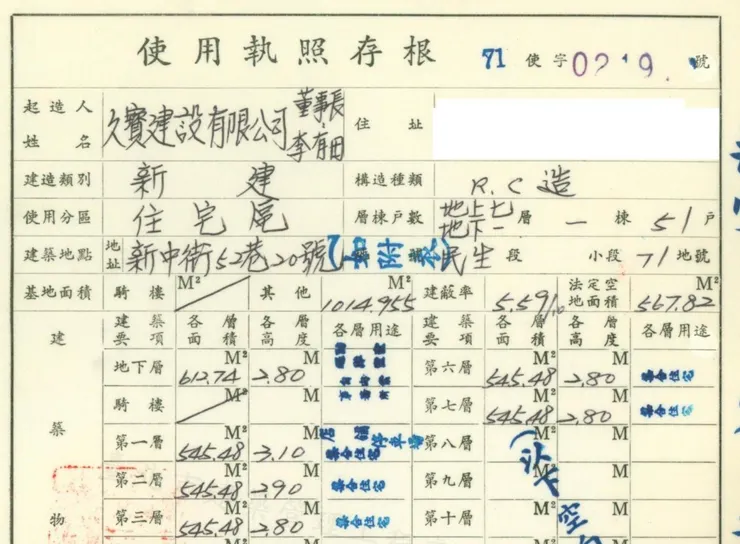 使用執照存根 71 使字 0219 號
起造人姓名 久寶建設有限公司 董事長 李有田 住址
建造類別 新建 構造種類 R.C造
使用分區 住宅區 層棟戶數 地上七地下一層 一棟 51戶
建築地點 地址 新中街52巷20號(如附表) 民生段 小段 71地號
基地面積 騎樓 M² 其他 1014.955 M² 建蔽率 法定空地面積 567.82 M²
建築要項 各層面積 各層高度 各層用途 建築要項 各層面積 各層高度 各層用途
建築物
地下層 612.74 M² 2.80 M 第六層 545.48 M² 2.80 M 集合住宅
騎樓 M² M 第七層 545.48 M² 2.80 M 集合住宅
第一層 545.48 M² 3.10 M 店舖 停車場 集合住宅 第八層 M² M
第二層 545.48 M² 2.90 M 集合住宅 第九層 M² M
第三層 545.48 M² 2.80 M 集合住宅 第十層 M² M
(以下空